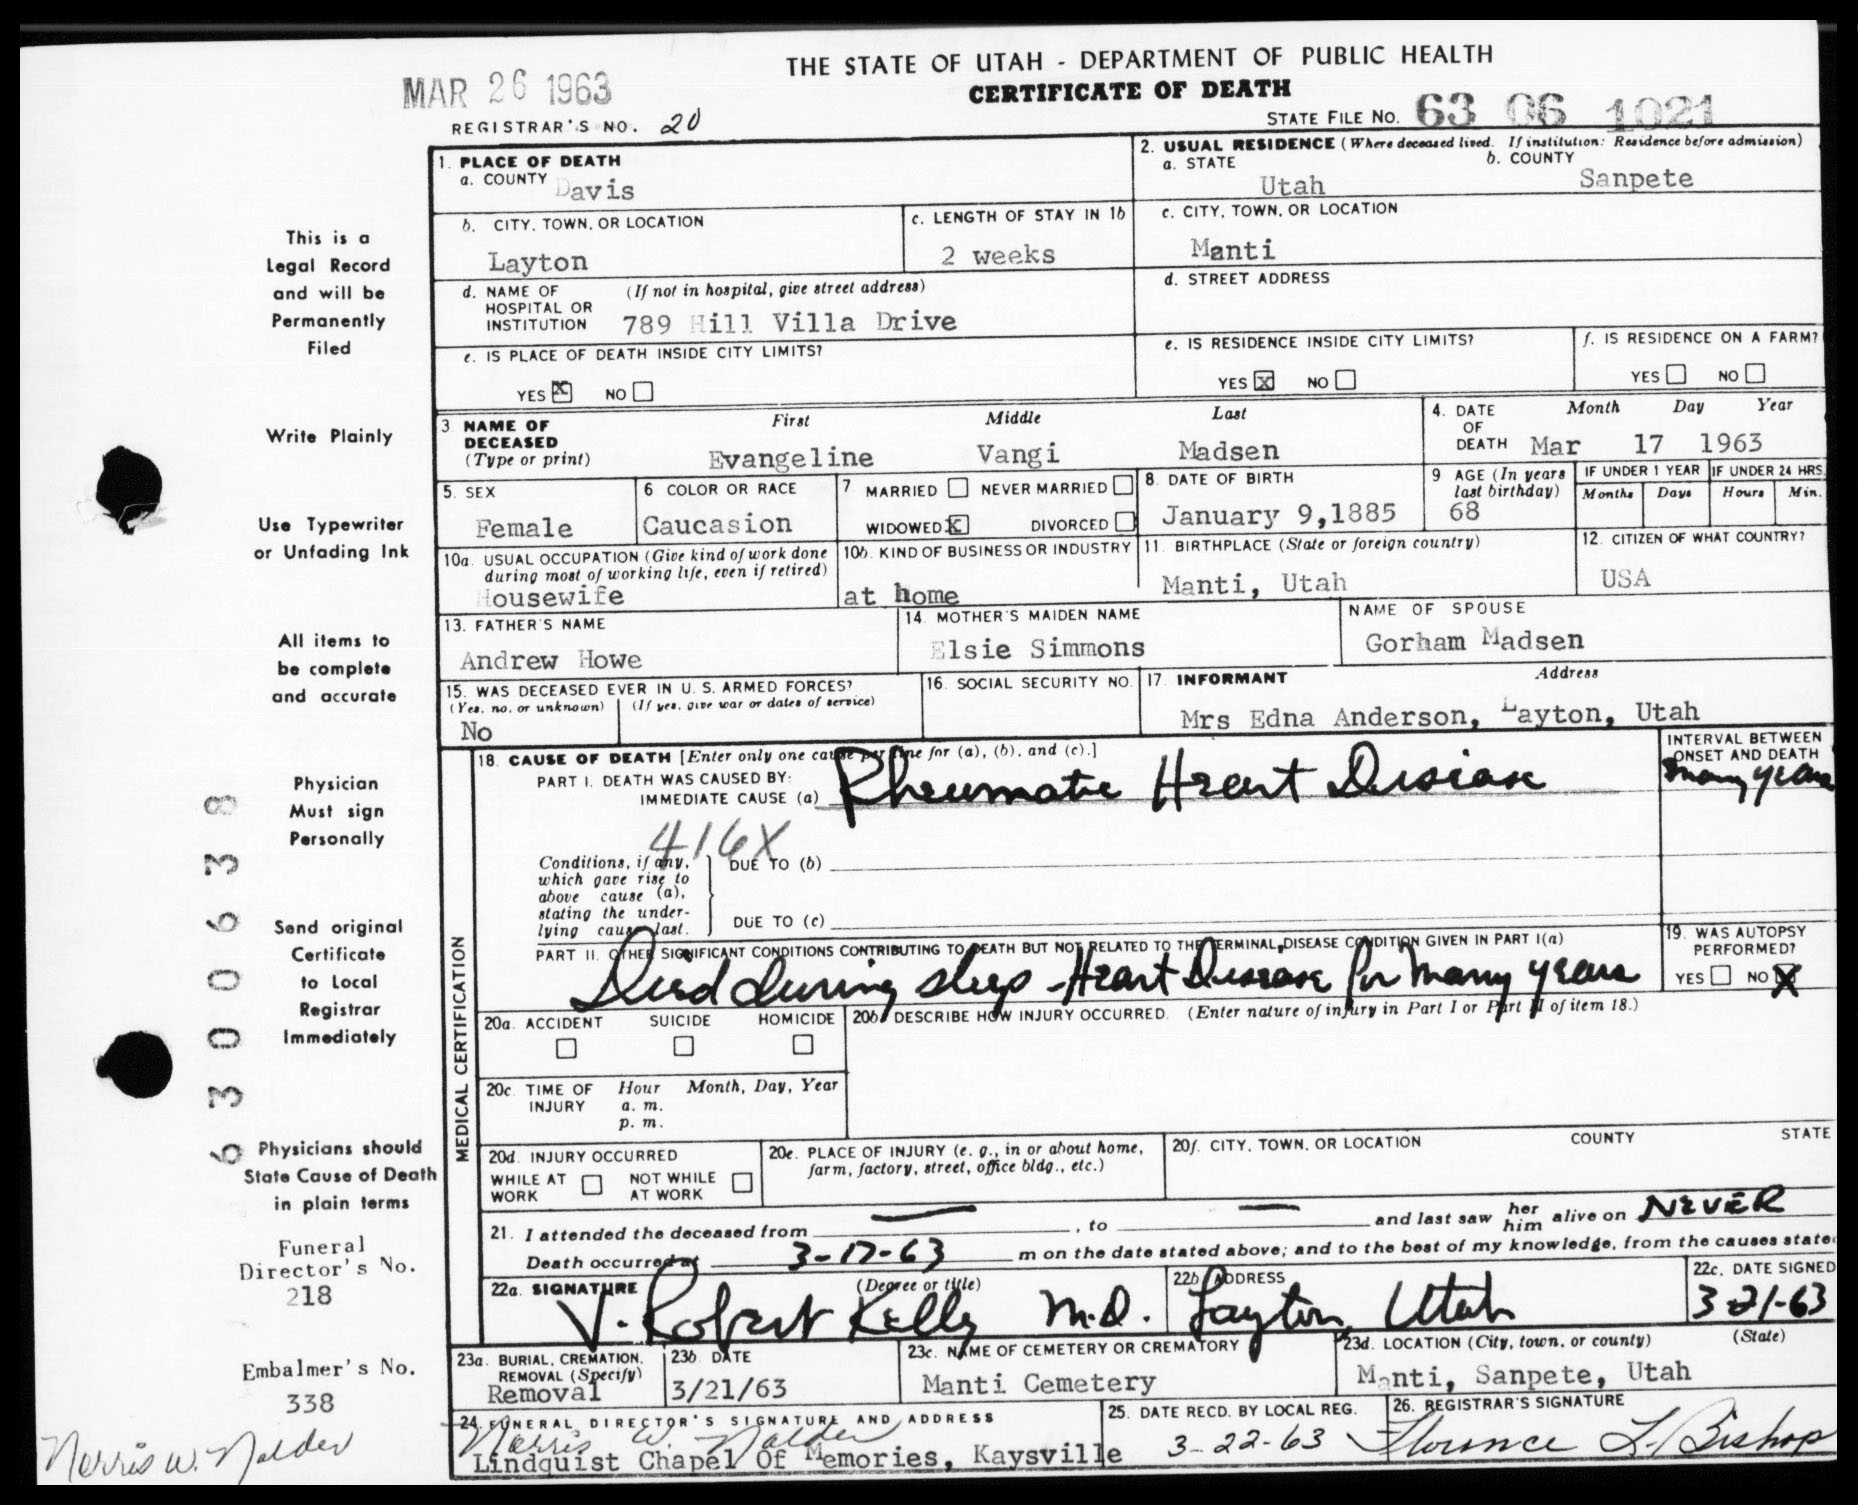 THE STATE OF UTAH - DEPARTMENT OF PUBLIC HEALTH
MAR 26 1963
CERTIFICATE OF DEATH
REGISTRAR'S NO. 20
STATE FILE NO. 63 06 1021
1. PLACE OF DEATH
a. COUNTY Davis
2. USUAL RESIDENCE (Where deceased lived. If institution: Residence before admission)
a. STATE Utah b. COUNTY Sanpete
b. CITY, TOWN, OR LOCATION Layton
c. LENGTH OF STAY IN 1b 2 weeks
c. CITY, TOWN, OR LOCATION Manti
d. NAME OF HOSPITAL OR INSTITUTION (If not in hospital, give street address) 789 Hill Villa Drive
d. STREET ADDRESS
e. IS PLACE OF DEATH INSIDE CITY LIMITS?
YES X NO
e. IS RESIDENCE INSIDE CITY LIMITS?
YES X NO
f. IS RESIDENCE ON A FARM?
YES NO
3 NAME OF DECEASED (Type or print)
First Middle Last
Evangeline Vangi Madsen
4. DATE OF DEATH Month Day Year
Mar 17 1963
5. SEX Female
6 COLOR OR RACE Caucasion
7 MARRIED NEVER MARRIED
WIDOWED X DIVORCED
8. DATE OF BIRTH January 9,1885
9 AGE (In years last birthday) 68
IF UNDER 1 YEAR Months Days
IF UNDER 24 HRS. Hours Min.
10a. USUAL OCCUPATION (Give kind of work done during most of working life, even if retired) Housewife
10b. KIND OF BUSINESS OR INDUSTRY at home
11. BIRTHPLACE (State or foreign country) Manti, Utah
12. CITIZEN OF WHAT COUNTRY? USA
13. FATHER'S NAME Andrew Howe
14. MOTHER'S MAIDEN NAME Elsie Simmons
NAME OF SPOUSE Gorham Madsen
15. WAS DECEASED EVER IN U. S. ARMED FORCES?
(Yes, no, or unknown) (If yes, give war or dates of service)
No
16. SOCIAL SECURITY NO.
17. INFORMANT Address
Mrs Edna Anderson, Layton, Utah
MEDICAL CERTIFICATION
18. CAUSE OF DEATH [Enter only one cause per line for (a), (b), and (c).]
PART I. DEATH WAS CAUSED BY:
IMMEDIATE CAUSE (a) Rheumatic Heart Disease
INTERVAL BETWEEN ONSET AND DEATH
many years
416X
Conditions, if any, which gave rise to above cause (a), stating the underlying cause last.
DUE TO (b)
DUE TO (c)
PART II. OTHER SIGNIFICANT CONDITIONS CONTRIBUTING TO DEATH BUT NOT RELATED TO THE TERMINAL DISEASE CONDITION GIVEN IN PART I(a)
Died during sleep - Heart Disease for many years
19. WAS AUTOPSY PERFORMED?
YES NO X
20a. ACCIDENT SUICIDE HOMICIDE
20b. DESCRIBE HOW INJURY OCCURRED. (Enter nature of injury in Part I or Part II of item 18.)
20c. TIME OF INJURY Hour Month, Day, Year
a. m.
p. m.
20d. INJURY OCCURRED
WHILE AT WORK NOT WHILE AT WORK
20e. PLACE OF INJURY (e. g., in or about home, farm, factory, street, office bldg., etc.)
20f. CITY, TOWN, OR LOCATION COUNTY STATE
21. I attended the deceased from — , to — and last saw her him alive on NEVER
Death occurred at 3-17-63 m on the date stated above; and to the best of my knowledge, from the causes state
22a. SIGNATURE (Degree or title)
V. Robert Kelly M.D.
22b ADDRESS Layton, Utah
22c. DATE SIGNED 3-21-63
23a. BURIAL, CREMATION, REMOVAL (Specify) Removal
23b. DATE 3/21/63
23c. NAME OF CEMETERY OR CREMATORY Manti Cemetery
23d. LOCATION (City, town, or county) (State)
Manti, Sanpete, Utah
24. FUNERAL DIRECTOR'S SIGNATURE AND ADDRESS
Norris W. Nalder
Lindquist Chapel Of Memories, Kaysville
25. DATE RECD. BY LOCAL REG. 3-22-63
26. REGISTRAR'S SIGNATURE
Florence L. Bishop
This is a
Legal Record
and will be
Permanently
Filed
Write Plainly
Use Typewriter
or Unfading Ink
All items to
be complete
and accurate
Physician
Must sign
Personally
Send original
Certificate
to Local
Registrar
Immediately
Physicians should
State Cause of Death
in plain terms
Funeral
Director's No.
218
Embalmer's No.
338
Norris W. Nalder
63006338